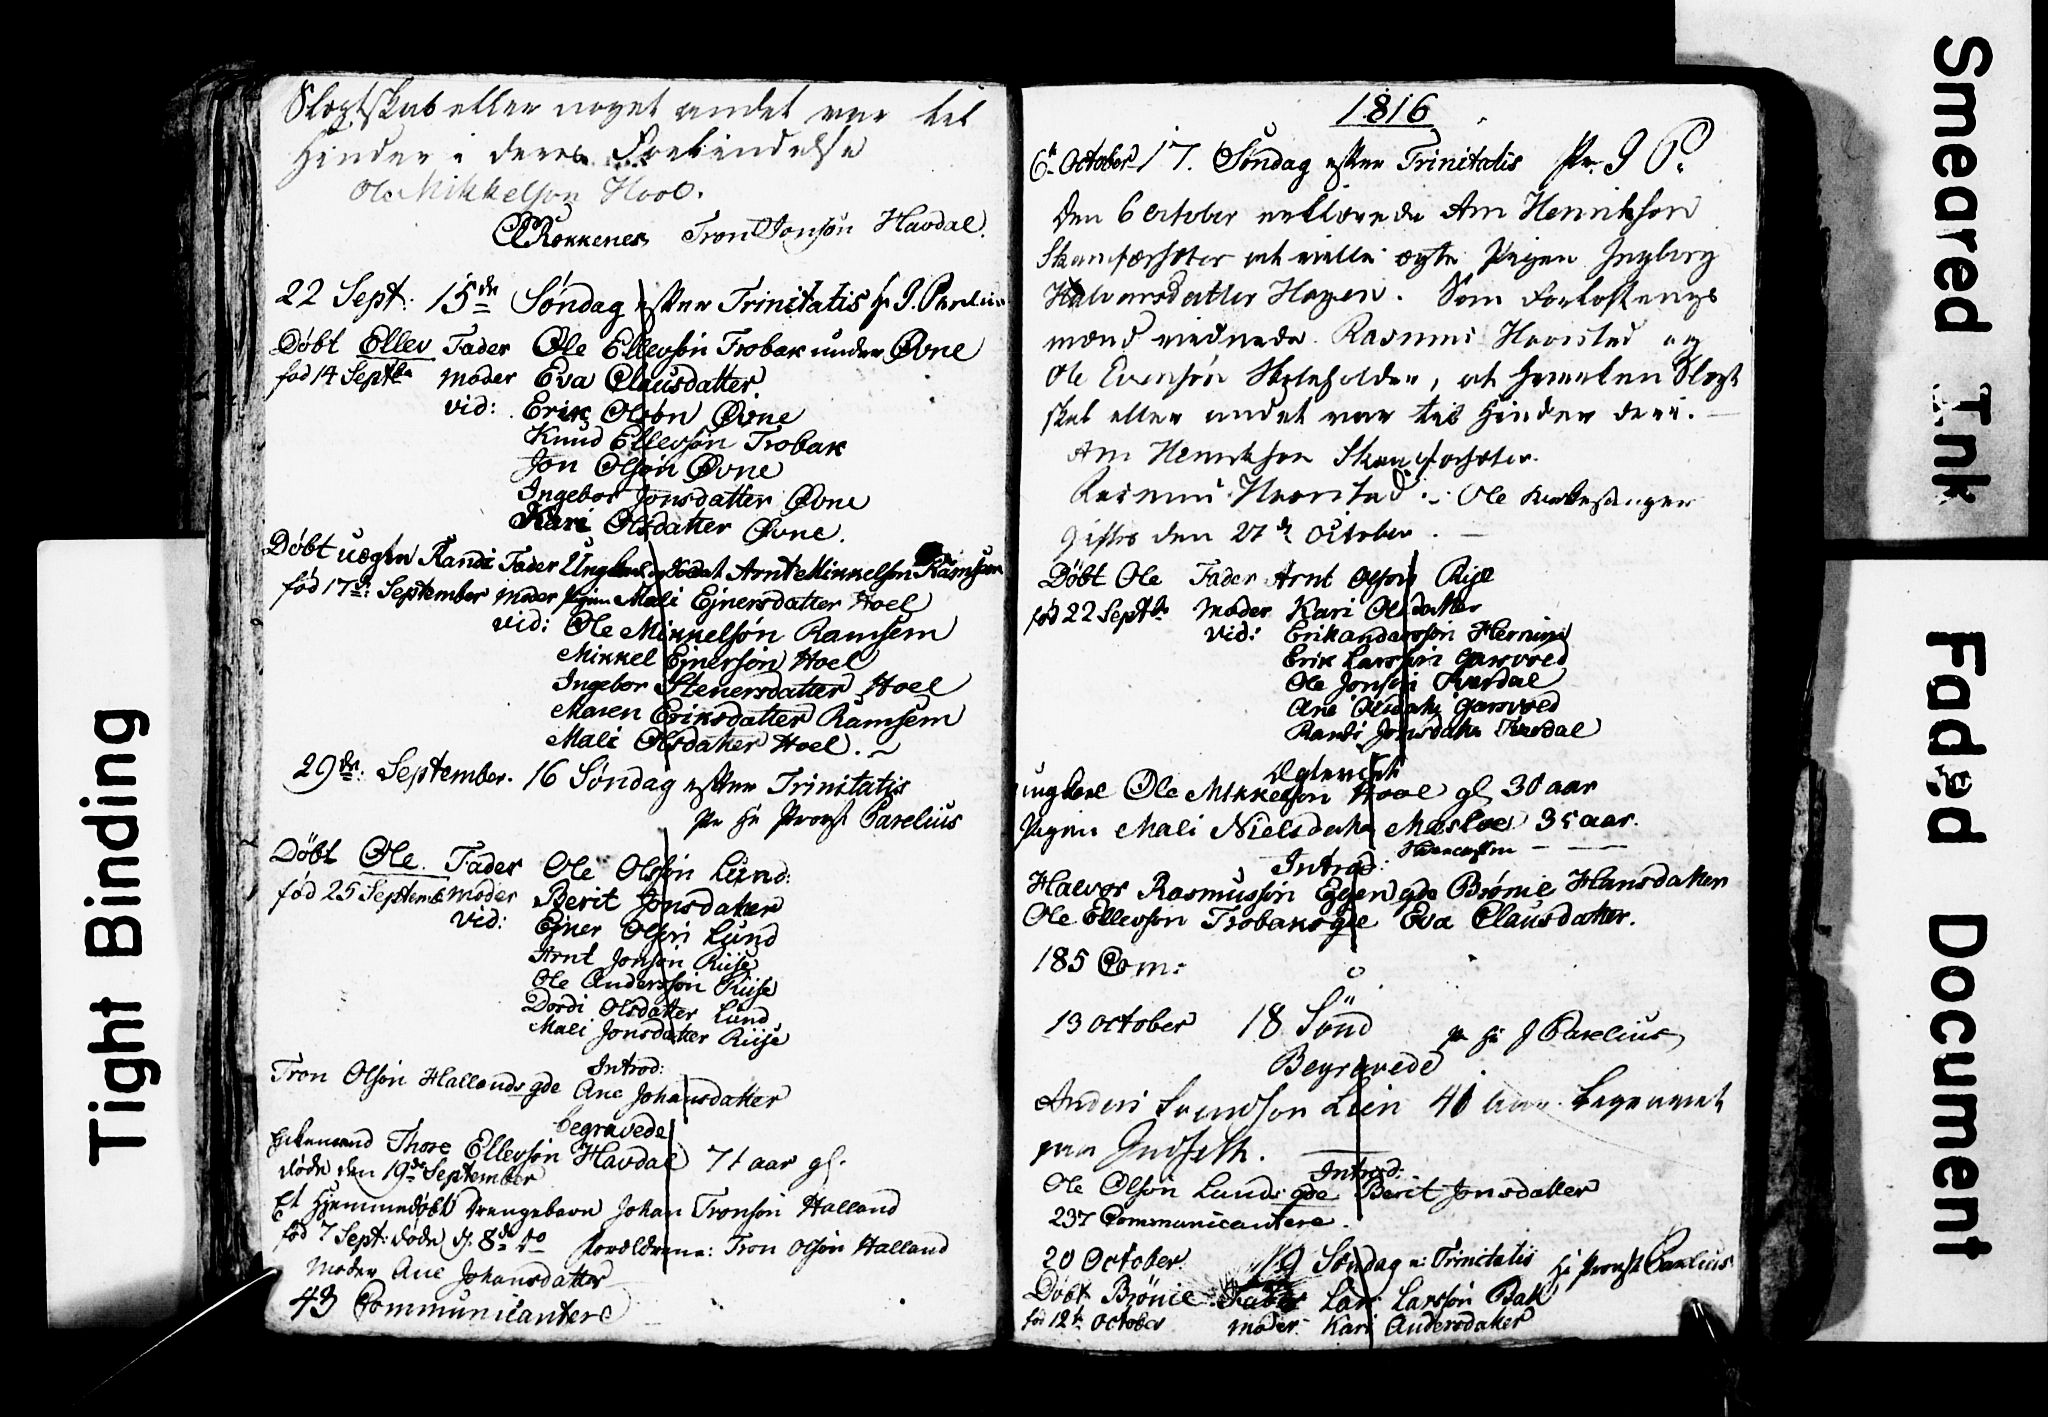 Slegtskab eller noget andet var til
Hinder i deres Forbindelse
Ole Mikkelson Hool.
Rokkenes Tron Jonsön Havdal.
22 Sept: 15de Söndag efter Trinitatis Hr J. Parelius
Döbt Ellev Fader Ole Ellevsön Trobak under Øvne
fød 14 Septbr Moder Eva Clausdatter
vid: Erik Olsön Øvne
Knud Ellevsön Trobak
Jon Olsön Øvne
Ingebor Jonsdatter Øvne
Kari Olsdatter Øvne.
Döbt uægten Randi Fader Ungkarl og Soldat Arnt Mikkelson Ramsem
fød 17de: September Moder Pigen Mali Ejnersdatter Hoel
vid: Ole Mikkelsön Ramsem
Mikkel Ejnersön Hoel
Ingebor Stenersdatter Hoel
Maren Eriksdatter Ramsem
Mali Olsdatter Hoel.
29de: September. 16 Söndag efter Trinitatis
Pr Hr Provst Parelius
Döbt Ole Fader Ole Olsön Lund:
fød 25 Septemb Moder Berit Jonsdatter
vid: Ejner Olsön Lund
Arnt Jonsön Riise
Ole Andersön Riise
Dordi Olsdatter Lund
Mali Jonsdatter Riise
Introd:
Tron Olsön Hallands gde Ane Johansdatter
begravede
Enkemand Thore Ellevsön Havdal 71 aar gl.
døde den 19de September
Et Hjemmedöbt Drengebarn Johan Tronsön Halland
fød 7 Sept: døde d: 8de do Forældrene: Tron Olsön Halland
Moder Ane Johansdatter
43 Communicantere
1816
6te October 17. Söndag efter Trinitatis Pr. J P.
Den 6 October erklærede Arn Henrikson
Skamfærsæter at ville ægte Pigen Ingeborg
Halvorsdatter Hagen. Som Forlovnings
mænd vidnede Rasmus Harstad og
Ole Evensön Skoleholder, at hverken Slegt
skab eller andet var til Hinder deri.
Arn Henrikson Skamfærsæter.
Rasmus Harstad Ole
giftes den 27de October.
Döbt Ole Fader Arnt Olson Rise
fød 22 Septbr Moder Kari Olsdatter
vid: Erik Anderssön Herning
Erik Larssön Garvoed
Ole Jonsön Kverdal
Ane Olsdatter Garvoed
Randi Jonsdatter Kverdal
Ægteviet
ungkarl Ole Mikkelsön Hool gl 30 aar
Pigen Mali Nielsdatter Mosloe 35 aar.
Introd:
Halvor Rasmussön Egen gde Brönie Hansdatter
Ole Ellevsön Trobaks gde Eva Clausdatter.
185 Com:
13 October 18 Sönd Pr Hr J Parelius
Begravede
Anders Svendson Lien 40 Aar. begravet
paa Indseth.
Introd:
Ole Olsön Lunds gde Berit Jonsdatter
237 Communicantere.
20 October. 19 Söndag e: Trinitatis Hr Provst Parelius
Döbt Brönie Fader Lars Larssön Bak
fød 12te October Moder Kari Andersdatter
Tight Binding
Smeared Ink
Faded Document